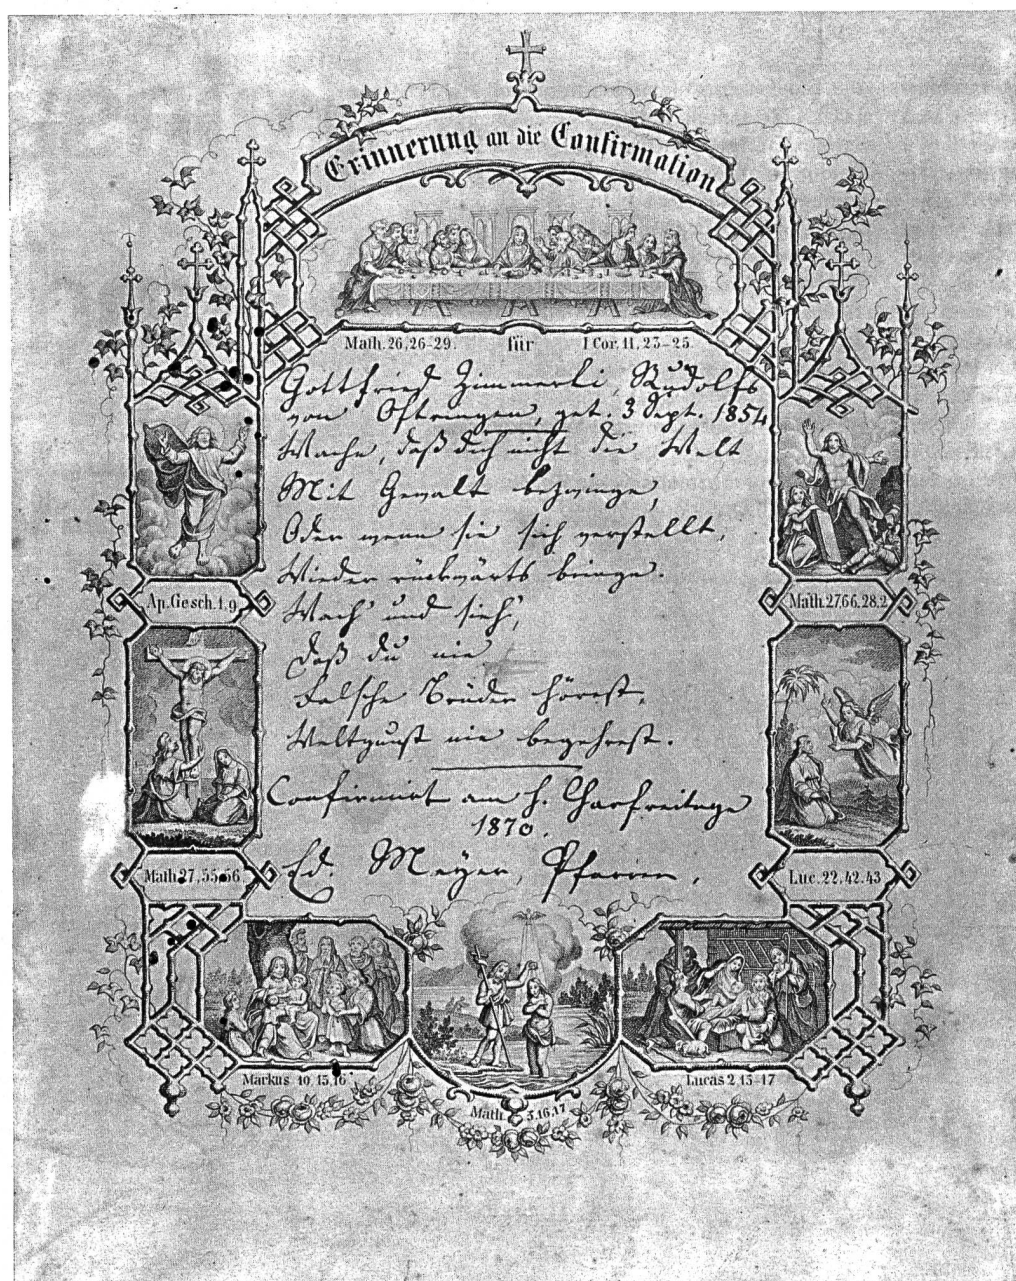 Erinnerung an die Confirmation
Math. 26, 26-29. für I Cor. 11, 23-25.
Gottfried Zimmerli, Rudolfs
von Oftringen, get. 3 Sept. 1854
Wache, daß dich nicht die Welt
Mit Gewalt bezwinge,
Oder wenn sie sich verstellt,
Wieder rückwärts bringe.
Wach' und sieh',
daß du nie
Falsche Brüder hörest,
Weltgunst nie begehrest.
Confirmirt am h. Charfreitage
1870.
Ed. Meyer, Pfarrer,
Ap. Gesch. 1, 9.
Math. 27,66. 28,2
Math. 27, 55, 56.
Luc. 22, 42. 43
Markus 10, 13, 16
Math. 3. 16. 17
Lucas 2, 15-17